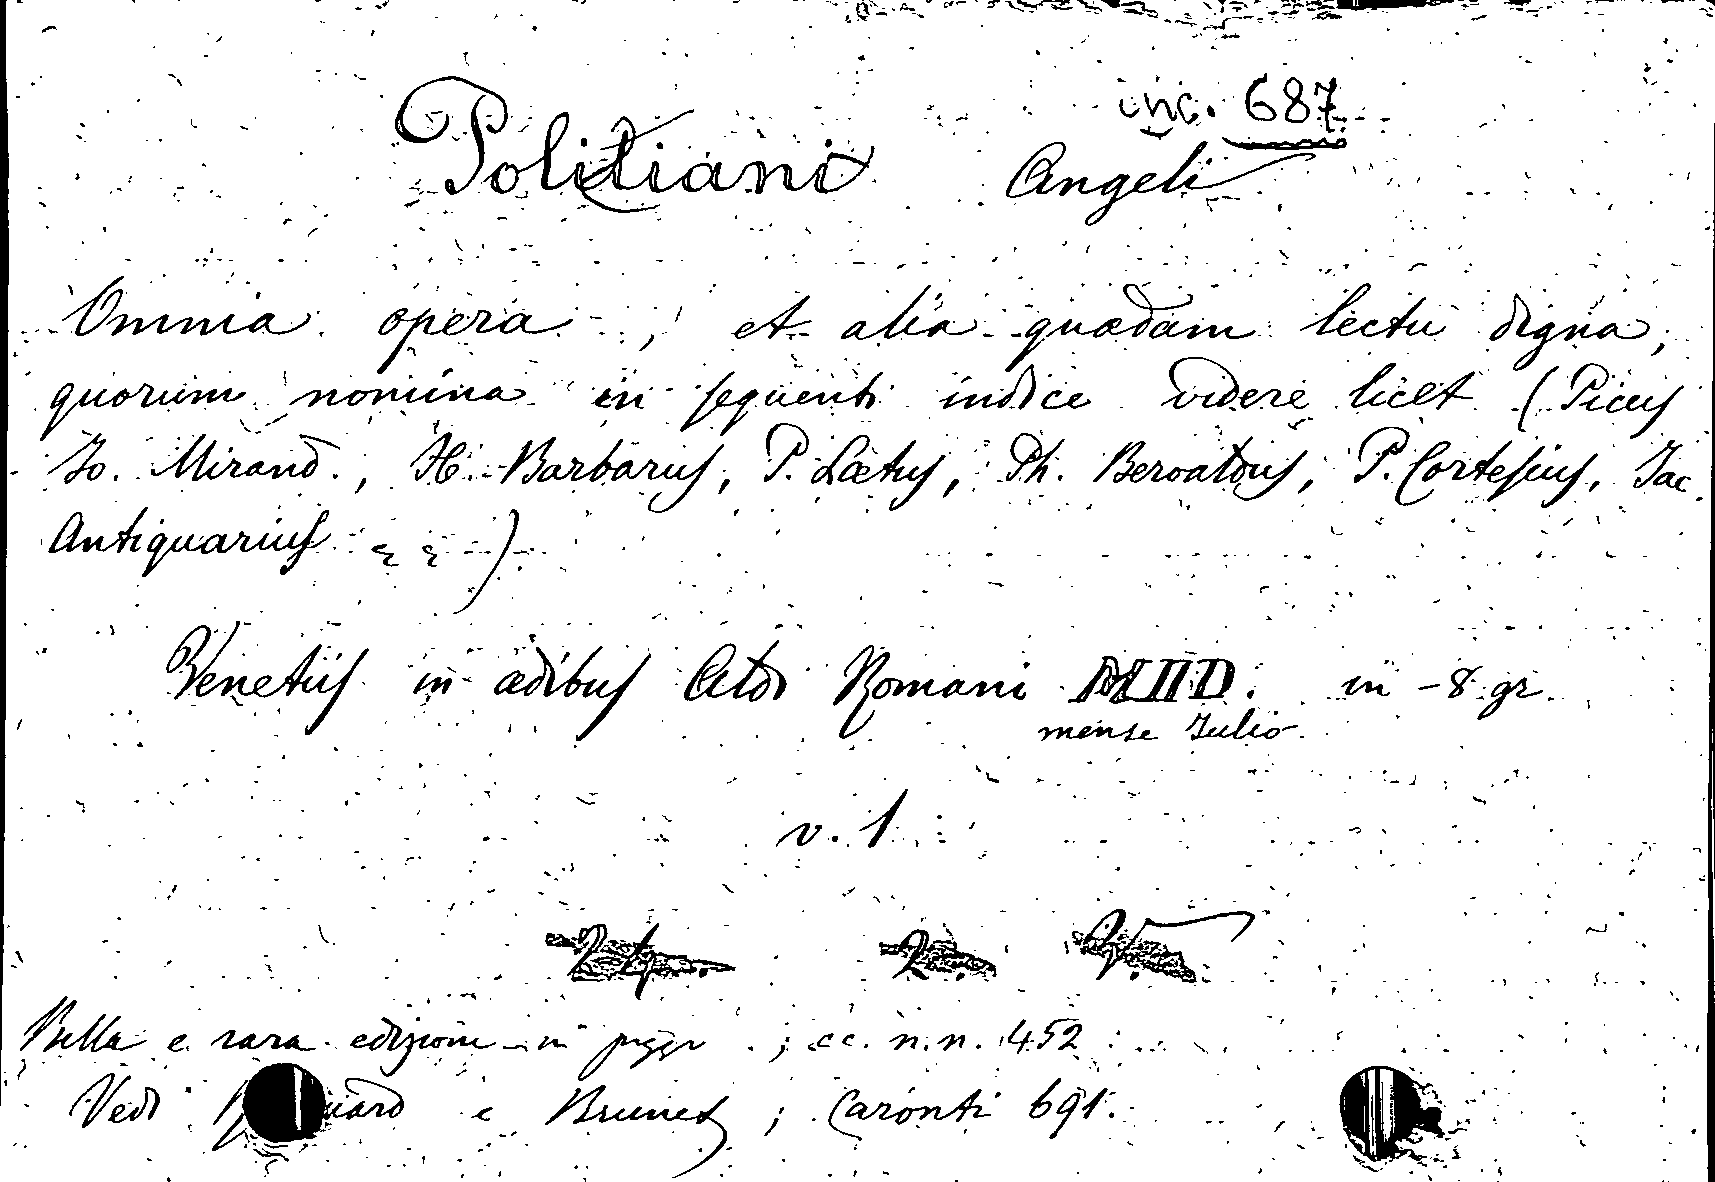 inc. 687
Politiani Angeli
Omnia opera, et alia quædam lectu digna,
quorum nomina in sequenti indice videre licet (Picus
Jo. Mirand., H. Barbarus, P. Lætus, Ph. Beroaldus, P. Cortesius, Jac.
Antiquarius )
Venetiis in ædibus Aldi Romani MIID. in-8 gr.
mense Julio
v. 1
24. 2. V.
Bella e rara edizione in ; cc. n.n. 452
Vedi e Brunet; Caronti 691.